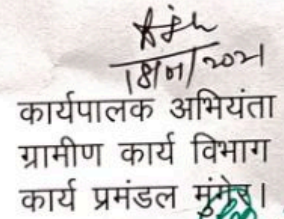 18/01/2021
कार्यपालक अभियंता
ग्रामीण कार्य विभाग
कार्य प्रमंडल मुंगेर।